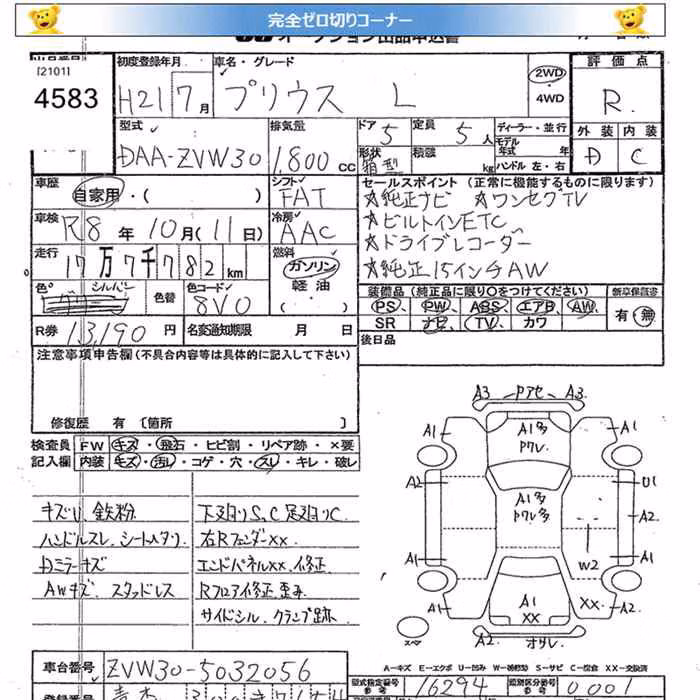 完全ゼロ切りコーナー
オークション出品申込書
[2101]
4583
初度登録年月
H21 7月
車名・グレード
プリウス L
2WD
・
4WD
評価点
R
外装 内装
D C
型式
DAA-ZVW30
排気量
1,800 CC
ドア
5
形状
箱型
定員
5人
積載
kg
ディーラー・並行
モデル年式 年
ハンドル 左・右
車歴
自家用・( )
シフト
FAT
車検
R8年10月(11日)
冷房
AAC
走行
17万7千782km
燃料
ガソリン
軽油
( )
色
シルバー
色替
色コード
8V0
R券 13,190円
名変通知期限 月 日
セールスポイント (正常に機能するものに限ります)
☆純正ナビ ☆ワンセグTV
☆ビルトインETC
☆ドライブレコーダー
☆純正15インチAW
装備品(純正品に限り○をつけてください)
新車保証書
PS PW ABS エアB AW
SR ナビ TV カワ
有・無
後日品
注意事項申告欄(不具合内容等は具体的に記入して下さい)
修復歴 有 [箇所 ]
検査員記入欄
FW キズ・飛石・ヒビ割・リペア跡・×要
内装 キズ・汚れ・コゲ・穴・スレ・キレ・破レ
キズU、鉄粉
ハンドルスレ、シートヘタリ
Dミラーキズ
AWキズ、スタッドレス
下廻りS、C 足廻りC
右RフェンダーXX
エンドパネルXX、修正
Rフロア修正、歪み
サイドシル、クランプ跡
A3 Pアセ A3
A1 A1多 A1
Pワレ
A2 A1多 U1
Pワレ多 A2
A1 W2 A1
A1 A1 XX XX A2
A2 オサレ
スペ
A-キズ E-エクボ U-凹み W-補修跡 S-サビ C-腐食 XX-交換済
車台番号
ZVW30-5032056
型式指定番号
参考
16294
類別区分番号
参考
0001
登録番号